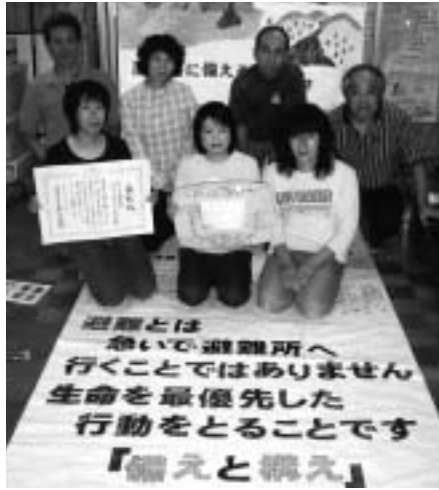 に備え
避難とは
急いで避難所へ
行くことではありません
生命を最優先した
行動をとることです
『備えと構え』